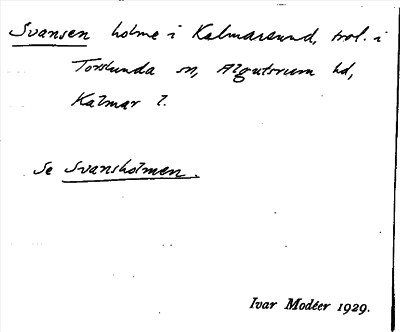 Svansen holme i Kalmarsund, trol. i
Torslunda sn, Algutsrum hd,
Kalmar l.
Se Svansholmen.
Ivar Modéer 1929.